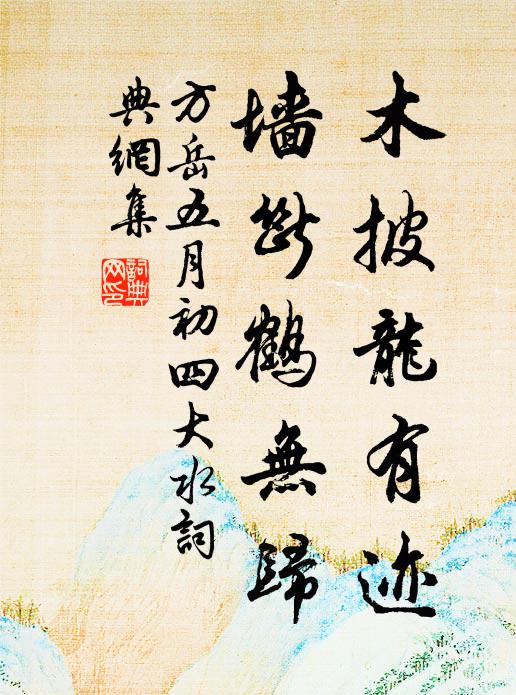 木披龍有迹
墻斷鶴無歸
方岳五月初四大水詞
典網集
詞典网印